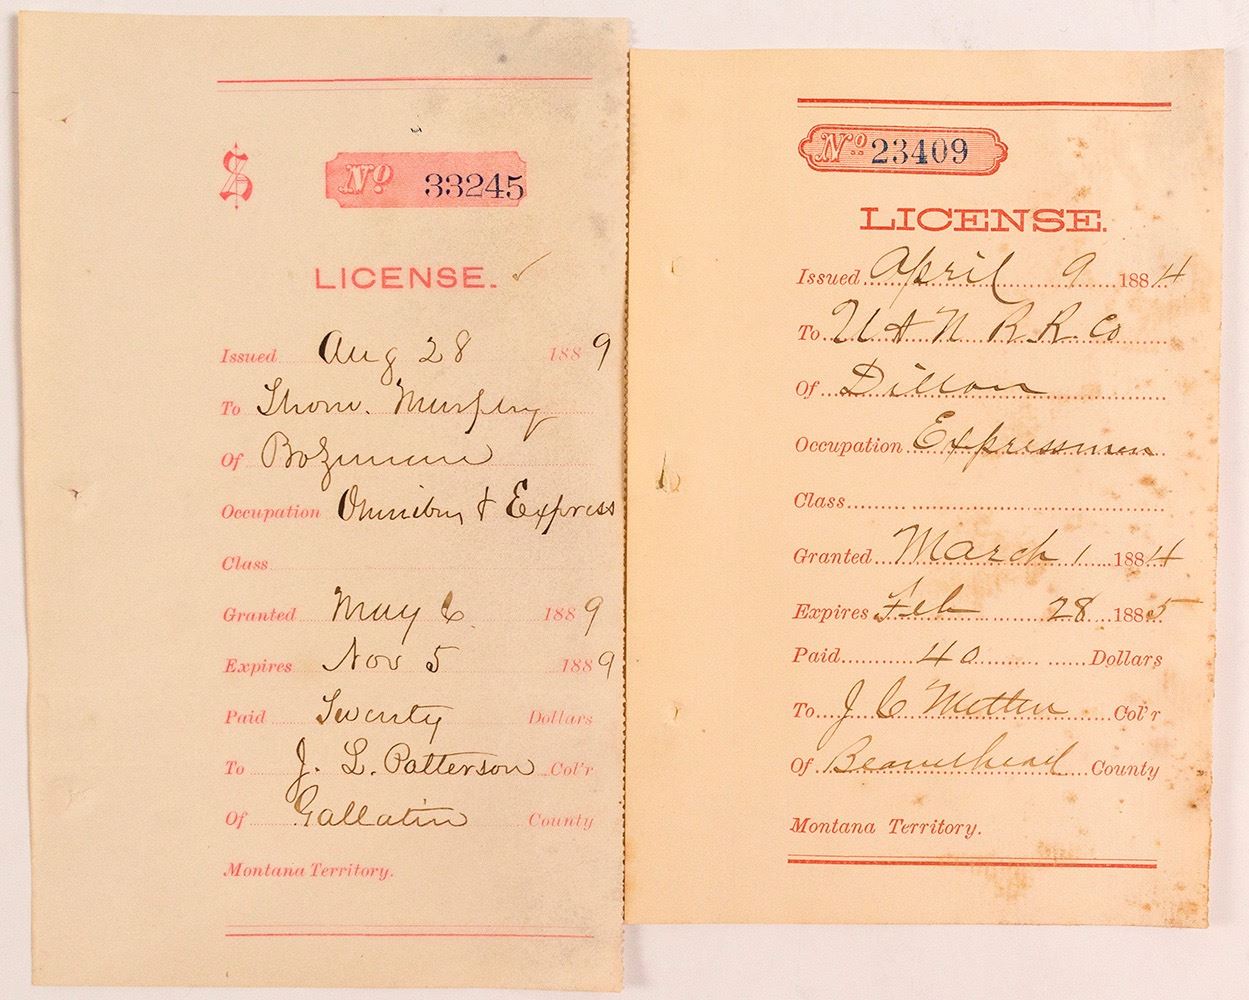 $
No 33245
LICENSE.
Issued Aug 28 1889
To Thom. Murphy
Of Bozeman
Occupation Omnibus & Express
Class
Granted May 6 1889
Expires Nov 5 1889
Paid Twenty Dollars
To J. L. Patterson Col'r
Of Gallatin County
Montana Territory.
No 23409
LICENSE.
Issued April 9 1884
To U & N R. R. Co
Of Dillon
Occupation Expressmen
Class
Granted March 1 1884
Expires Feb 28 1885
Paid 40 Dollars
To J C Metten Col'r
Of Beaverhead County
Montana Territory.